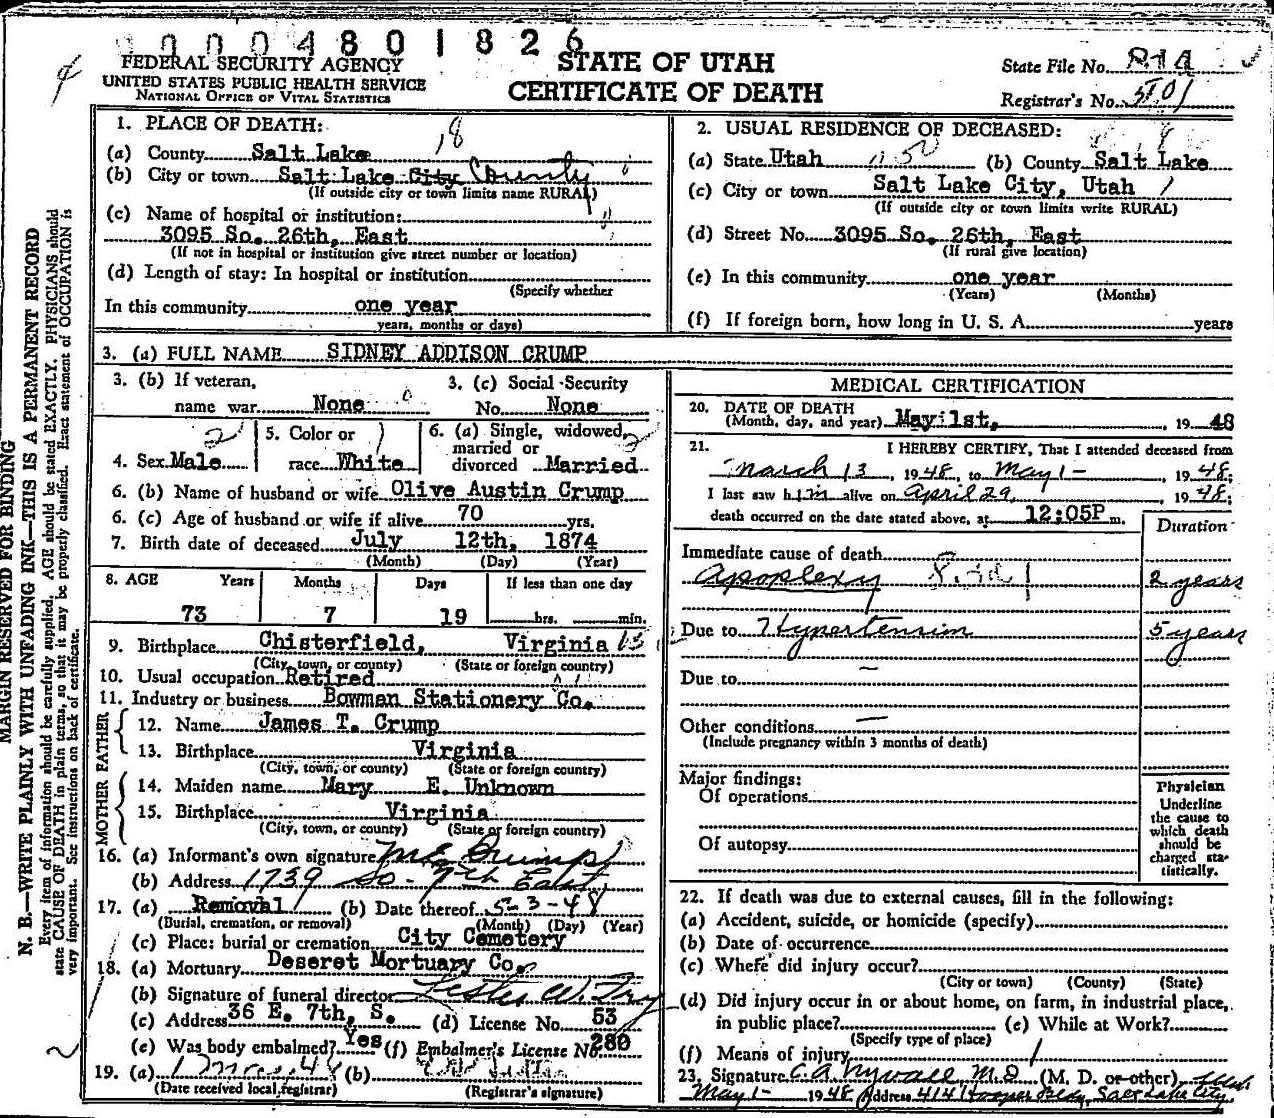 0004801826
FEDERAL SECURITY AGENCY
UNITED STATES PUBLIC HEALTH SERVICE
NATIONAL OFFICE OF VITAL STATISTICS
STATE OF UTAH
CERTIFICATE OF DEATH
State File No.
Registrar's No.
MARGIN RESERVED FOR BINDING
N. B.—WRITE PLAINLY WITH UNFADING INK—THIS IS A PERMANENT RECORD
Every item of information should be carefully supplied. AGE should be stated EXACTLY. PHYSICIANS should
state CAUSE OF DEATH in plain terms, so that it may be properly classified. Exact statement of OCCUPATION is
very important. See instructions on back of certificate.
1. PLACE OF DEATH:
(a) County Salt Lake
(b) City or town Salt Lake City County
(If outside city or town limits name RURAL)
(c) Name of hospital or institution:
3095 So. 26th, East
(If not in hospital or institution give street number or location)
(d) Length of stay: In hospital or institution
(Specify whether
In this community one year
years, months or days)
2. USUAL RESIDENCE OF DECEASED:
(a) State Utah (b) County Salt Lake
(c) City or town Salt Lake City, Utah
(If outside city or town limits write RURAL)
(d) Street No. 3095 So. 26th, East
(If rural give location)
(e) In this community one year
(Years) (Months)
(f) If foreign born, how long in U. S. A. years
3. (a) FULL NAME SIDNEY ADDISON CRUMP
3. (b) If veteran, name war None
3. (c) Social Security No. None
4. Sex Male
5. Color or race White
6. (a) Single, widowed, married or divorced Married
6. (b) Name of husband or wife Olive Austin Crump
6. (c) Age of husband or wife if alive 70 yrs.
7. Birth date of deceased July 12th, 1874
(Month) (Day) (Year)
8. AGE Years Months Days If less than one day
73 7 19 hrs. min.
9. Birthplace Chisterfield, Virginia
(City, town, or county) (State or foreign country)
10. Usual occupation Retired
11. Industry or business Bowman Stationery Co.
FATHER
12. Name James T. Crump
13. Birthplace Virginia
(City, town, or county) (State or foreign country)
MOTHER
14. Maiden name Mary E. Unknown
15. Birthplace Virginia
(City, town, or county) (State or foreign country)
16. (a) Informant's own signature M E Crump
(b) Address 1739 So- 7th East
17. (a) Removal (b) Date thereof 5-3-48
(Burial, cremation, or removal) (Month) (Day) (Year)
(c) Place: burial or cremation City Cemetery
18. (a) Mortuary Deseret Mortuary Co.
(b) Signature of funeral director Lester W.
(c) Address 36 E. 7th, S. (d) License No. 53
(e) Was body embalmed? Yes (f) Embalmer's License No. 280
19. (a) (b)
(Date received local registrar) (Registrar's signature)
MEDICAL CERTIFICATION
20. DATE OF DEATH
(Month, day, and year) May 1st, 19 48
21. I HEREBY CERTIFY, That I attended deceased from
March 13, 1948, to May 1-, 1948;
I last saw him alive on April 29, 1948;
death occurred on the date stated above, at 12:05P m.
Duration
Immediate cause of death
Apoplexy 2 years
Due to Hypertension 5 years
Due to —
Other conditions —
(Include pregnancy within 3 months of death)
Major findings:
Of operations
Of autopsy
Physician
Underline
the cause to
which death
should be
charged sta-
tistically.
22. If death was due to external causes, fill in the following:
(a) Accident, suicide, or homicide (specify)
(b) Date of occurrence
(c) Where did injury occur?
(City or town) (County) (State)
(d) Did injury occur in or about home, on farm, in industrial place,
in public place? (e) While at Work?
(Specify type of place)
(f) Means of injury
23. Signature C. A. Nyvall, M.D (M. D. or other)
May 1- 1948 Address 414 Hooper Bldg, Salt Lake City,